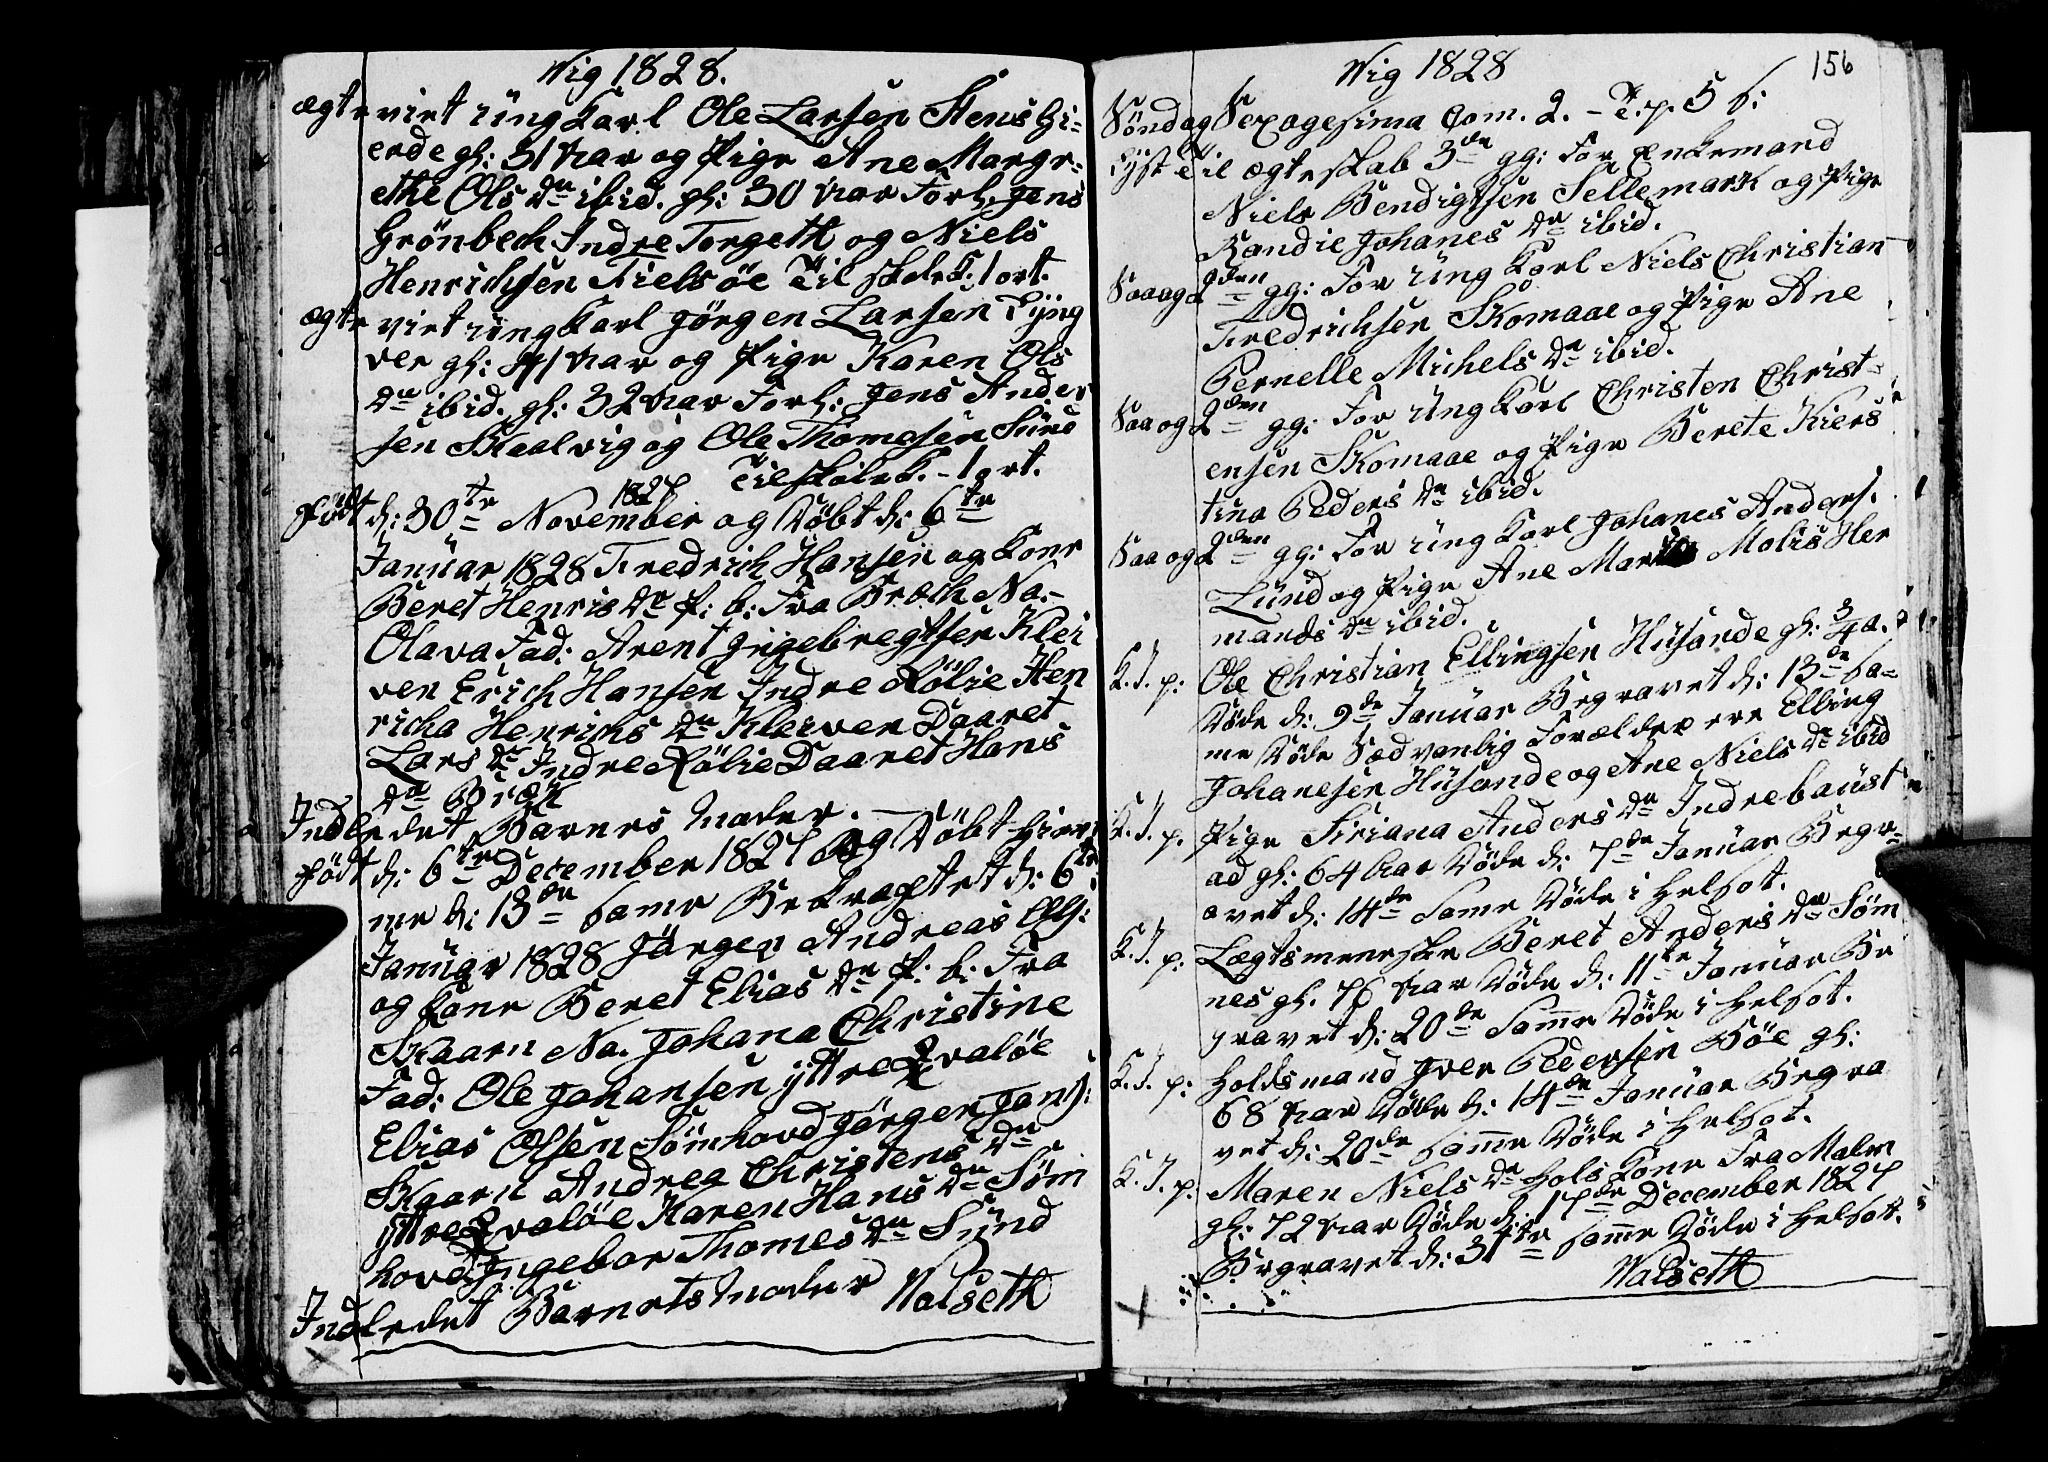 Wig 1828.
ægtevirt ungkarl Ole Larsen Stensgi-
erde gl: 31 Aar og Pige Ane Margr-
ethe Ols dr ibid. gl: 30 Aar Forl. Jens
Grönbech Indre Torgeth og Niels
Henrichsen Tielsöe Til skolek. 1 ort.
ægtevirt ungkarl Jörgen Larsen Lyng
ver gl: 41 Aar og Pige Karen Ols
dr ibid. gl: 32 Aar Forl: Jens Ander
sen Skaalvig og Ole Thomesen Sund
Til skolek. - 1 ort.
Födt d: 30te November 1827 og Döbt d: 6te
Januar 1828 Fredrich Hansen og kone
Beret Henris dr P: b: Fra Bræk Na.-
Olava Fad: Arent Ingebregtsen Klei
ven Erich Hansen Indre Rölie Hen
richa Henrichs dr Kleiven Daaret
Lars dr Indre Rölie Daaret Hans
dr Bræk
Indledet Barnets Moder.
Födt d: 6te December 1827 og Döbt hiem
me d: 13de same Bekræftet d: 6te
Januar 1828 Jörgen Andreas Ols:
og kone Beret Elias dr P. b. Fra
Skaarn Na. Johana Christine
Fad: Ole Johansen yttre Qvalöe
Elias Olsen Sömhovd Jörgen Jans:
Skaarn Andrea Christens dr
yttre Qvalöe Karen Hans dr Söm
hovd Ingebor Thomes dr Sund
Indledet Barnets Moder Walseth
Wig 1828
156
Söndag Sexagesima Com. 2. - T. p. 5 s:
Lyst Til ægteskab 3de gg: For Enkemand
Niels Bendigtsen Sellemark og Pige
Randie Johanes dr ibid.
Saa og 2den gg: For ungkarl Niels Christian
Fredrichsen Skomaae og Pige Ane
Pernelle Michels dr ibid.
Saa og 2den gg: For ungkarl Christen Christ-
ensen Skomaae og Pige Berete Kiers
tina Peders dr ibid.
Saa og 2den gg: For ungkarl Johanes Anders.
Lund og Pige Ane Moliis Her
mands dr ibid.
K. J. p: Ole Christian Ellingsen Husande gl: 3/4 a.
Döde d: 9de Januar Begravet d: 13de sa-
me Döde Sædvanlig Forældre ere Elling
Johanesen Husande og Ane Niels dr ibid
K. J. p. Pige Siriana Anders dr Indrebaust
ad gl: 64 Aar Döde d: 7de Januar Begr-
avet d: 14de Same Döde i Helsot.
K. J. p: Lægtsmeneske Beret Anders dr Söm
nes gl. 76 Aar Döde d: 11te Januar Be
gravet d: 20de Same Döde i Helsot.
K. J. p: Holdsmand Iver Pedersen Böe gl:
68 Aar Döde d: 14de Januar Begra
vet d: 20de same Döde i Helsot.
K. J. p. Maren Niels dr Hols kone Fra Malm
gl: 72 Aar Döde d: 17de December 1827
Begravet d: 31te same Döde i Helsot.
Walseth